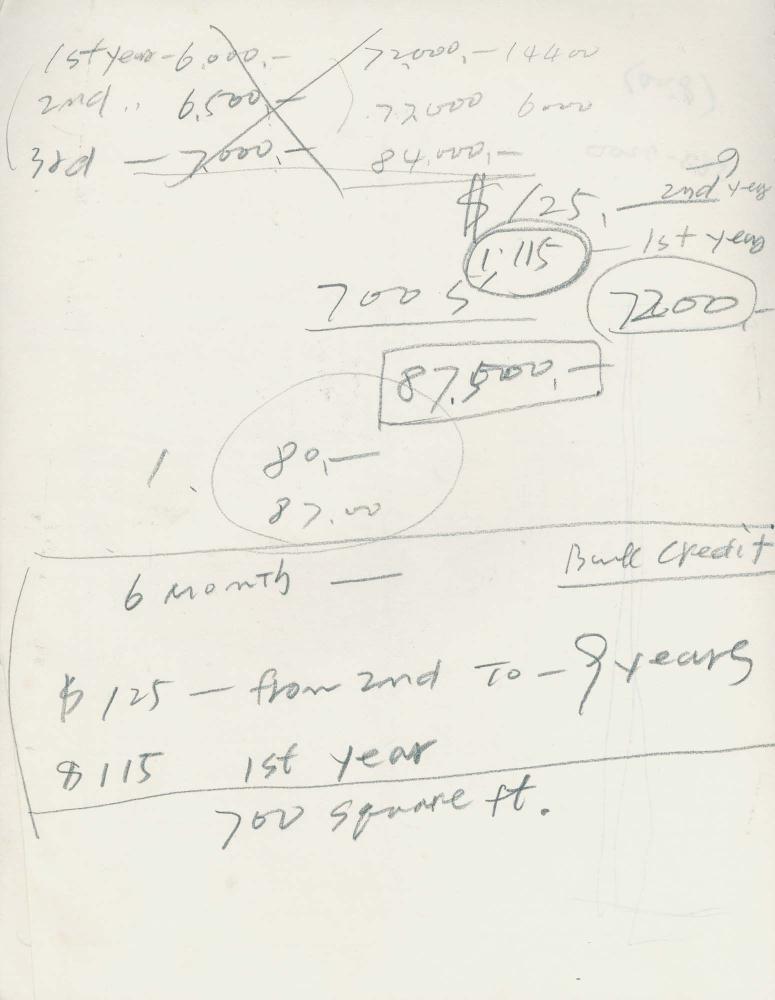 1st year - 6,000,- 72,000,- 14400
2nd " 6,500,- 72000 6000
3rd - 7,000,- 84,000,-
$125,- 2nd year - 9
1.115 - 1st year
700 s' 7200-
87,500,-
1. 80,-
87.00
6 month — Bank Credit
$125 - from 2nd To - 9 years
$115 1st year
700 square ft.